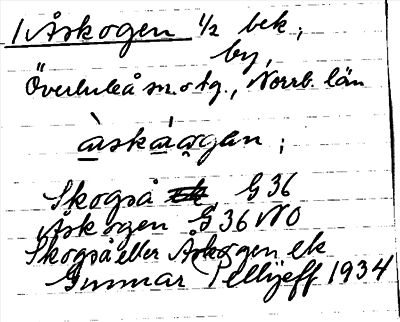 1 Åskogen 1/2 bek,
by,
Överluleå sn. o tg., Norrb. län
àskáogan ;
Skogså G 36
Åskogen G 36 NO
Skogså eller Åskogen ek
Gunnar Pellijeff 1934